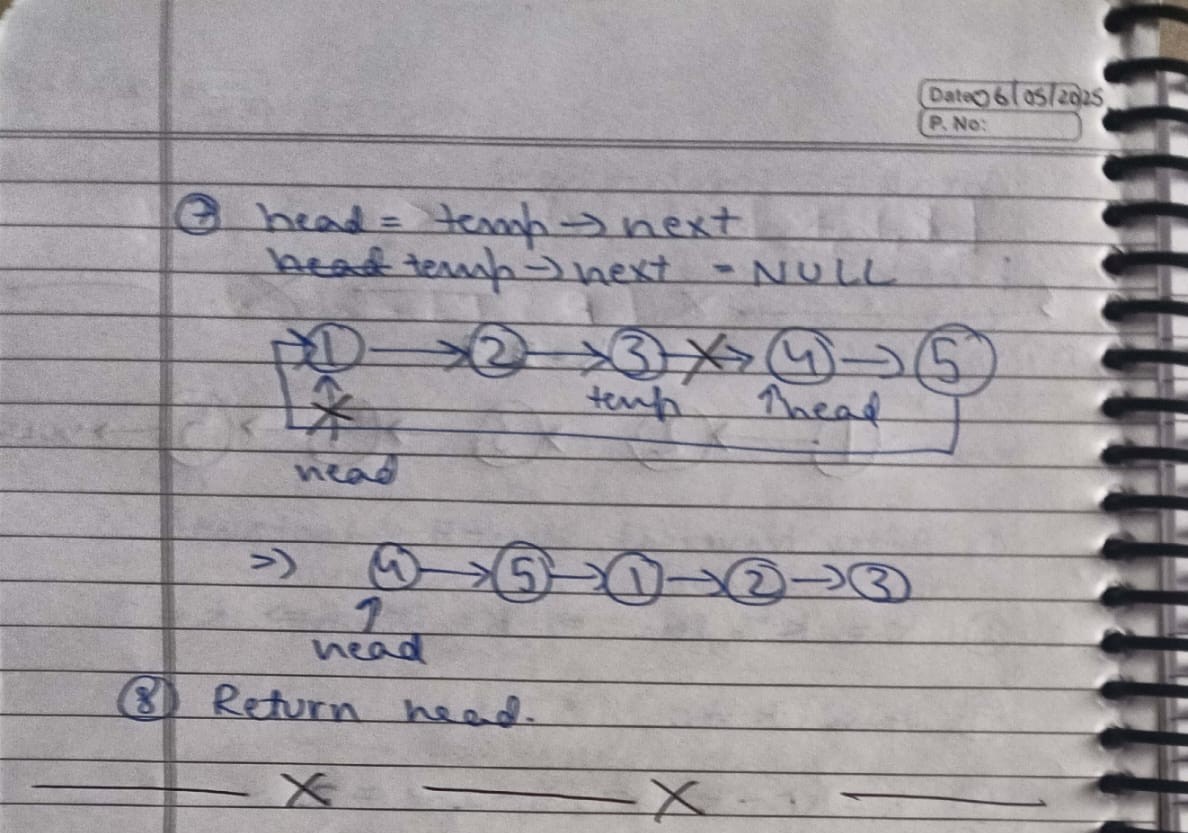 Date: 06/05/2025
P. No:
⑦ head = temp → next
head temp → next = NULL
① → ② → ③ → ④ → ⑤
temp ↑head
head
⇒ ④ → ⑤ → ① → ② → ③
↑
head
⑧ Return head.